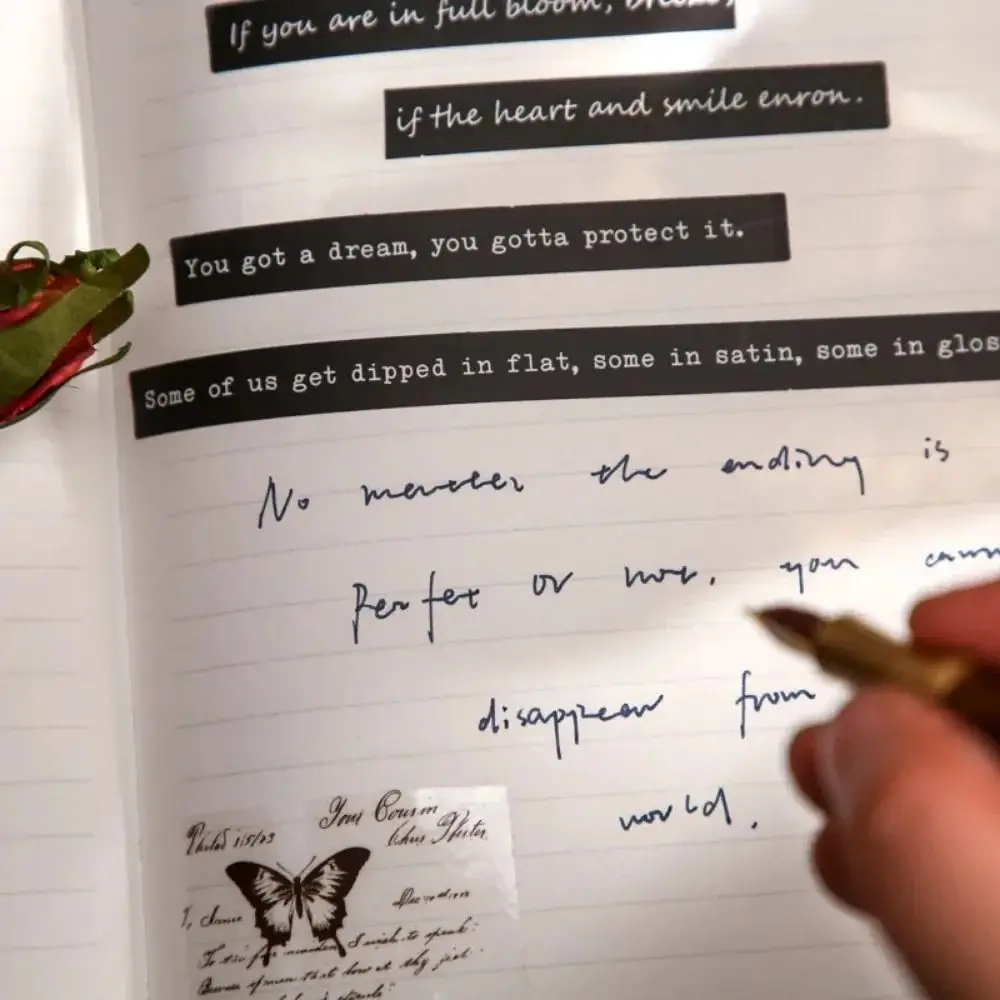 If you are in full bloom,
if the heart and smile enron.
You got a dream, you gotta protect it.
Some of us get dipped in flat, some in satin, some in glos
No matter the ending is
Perfect or not. you
disappear from
world.
Your Cousin
To
I wish to speak:
that bow at thy